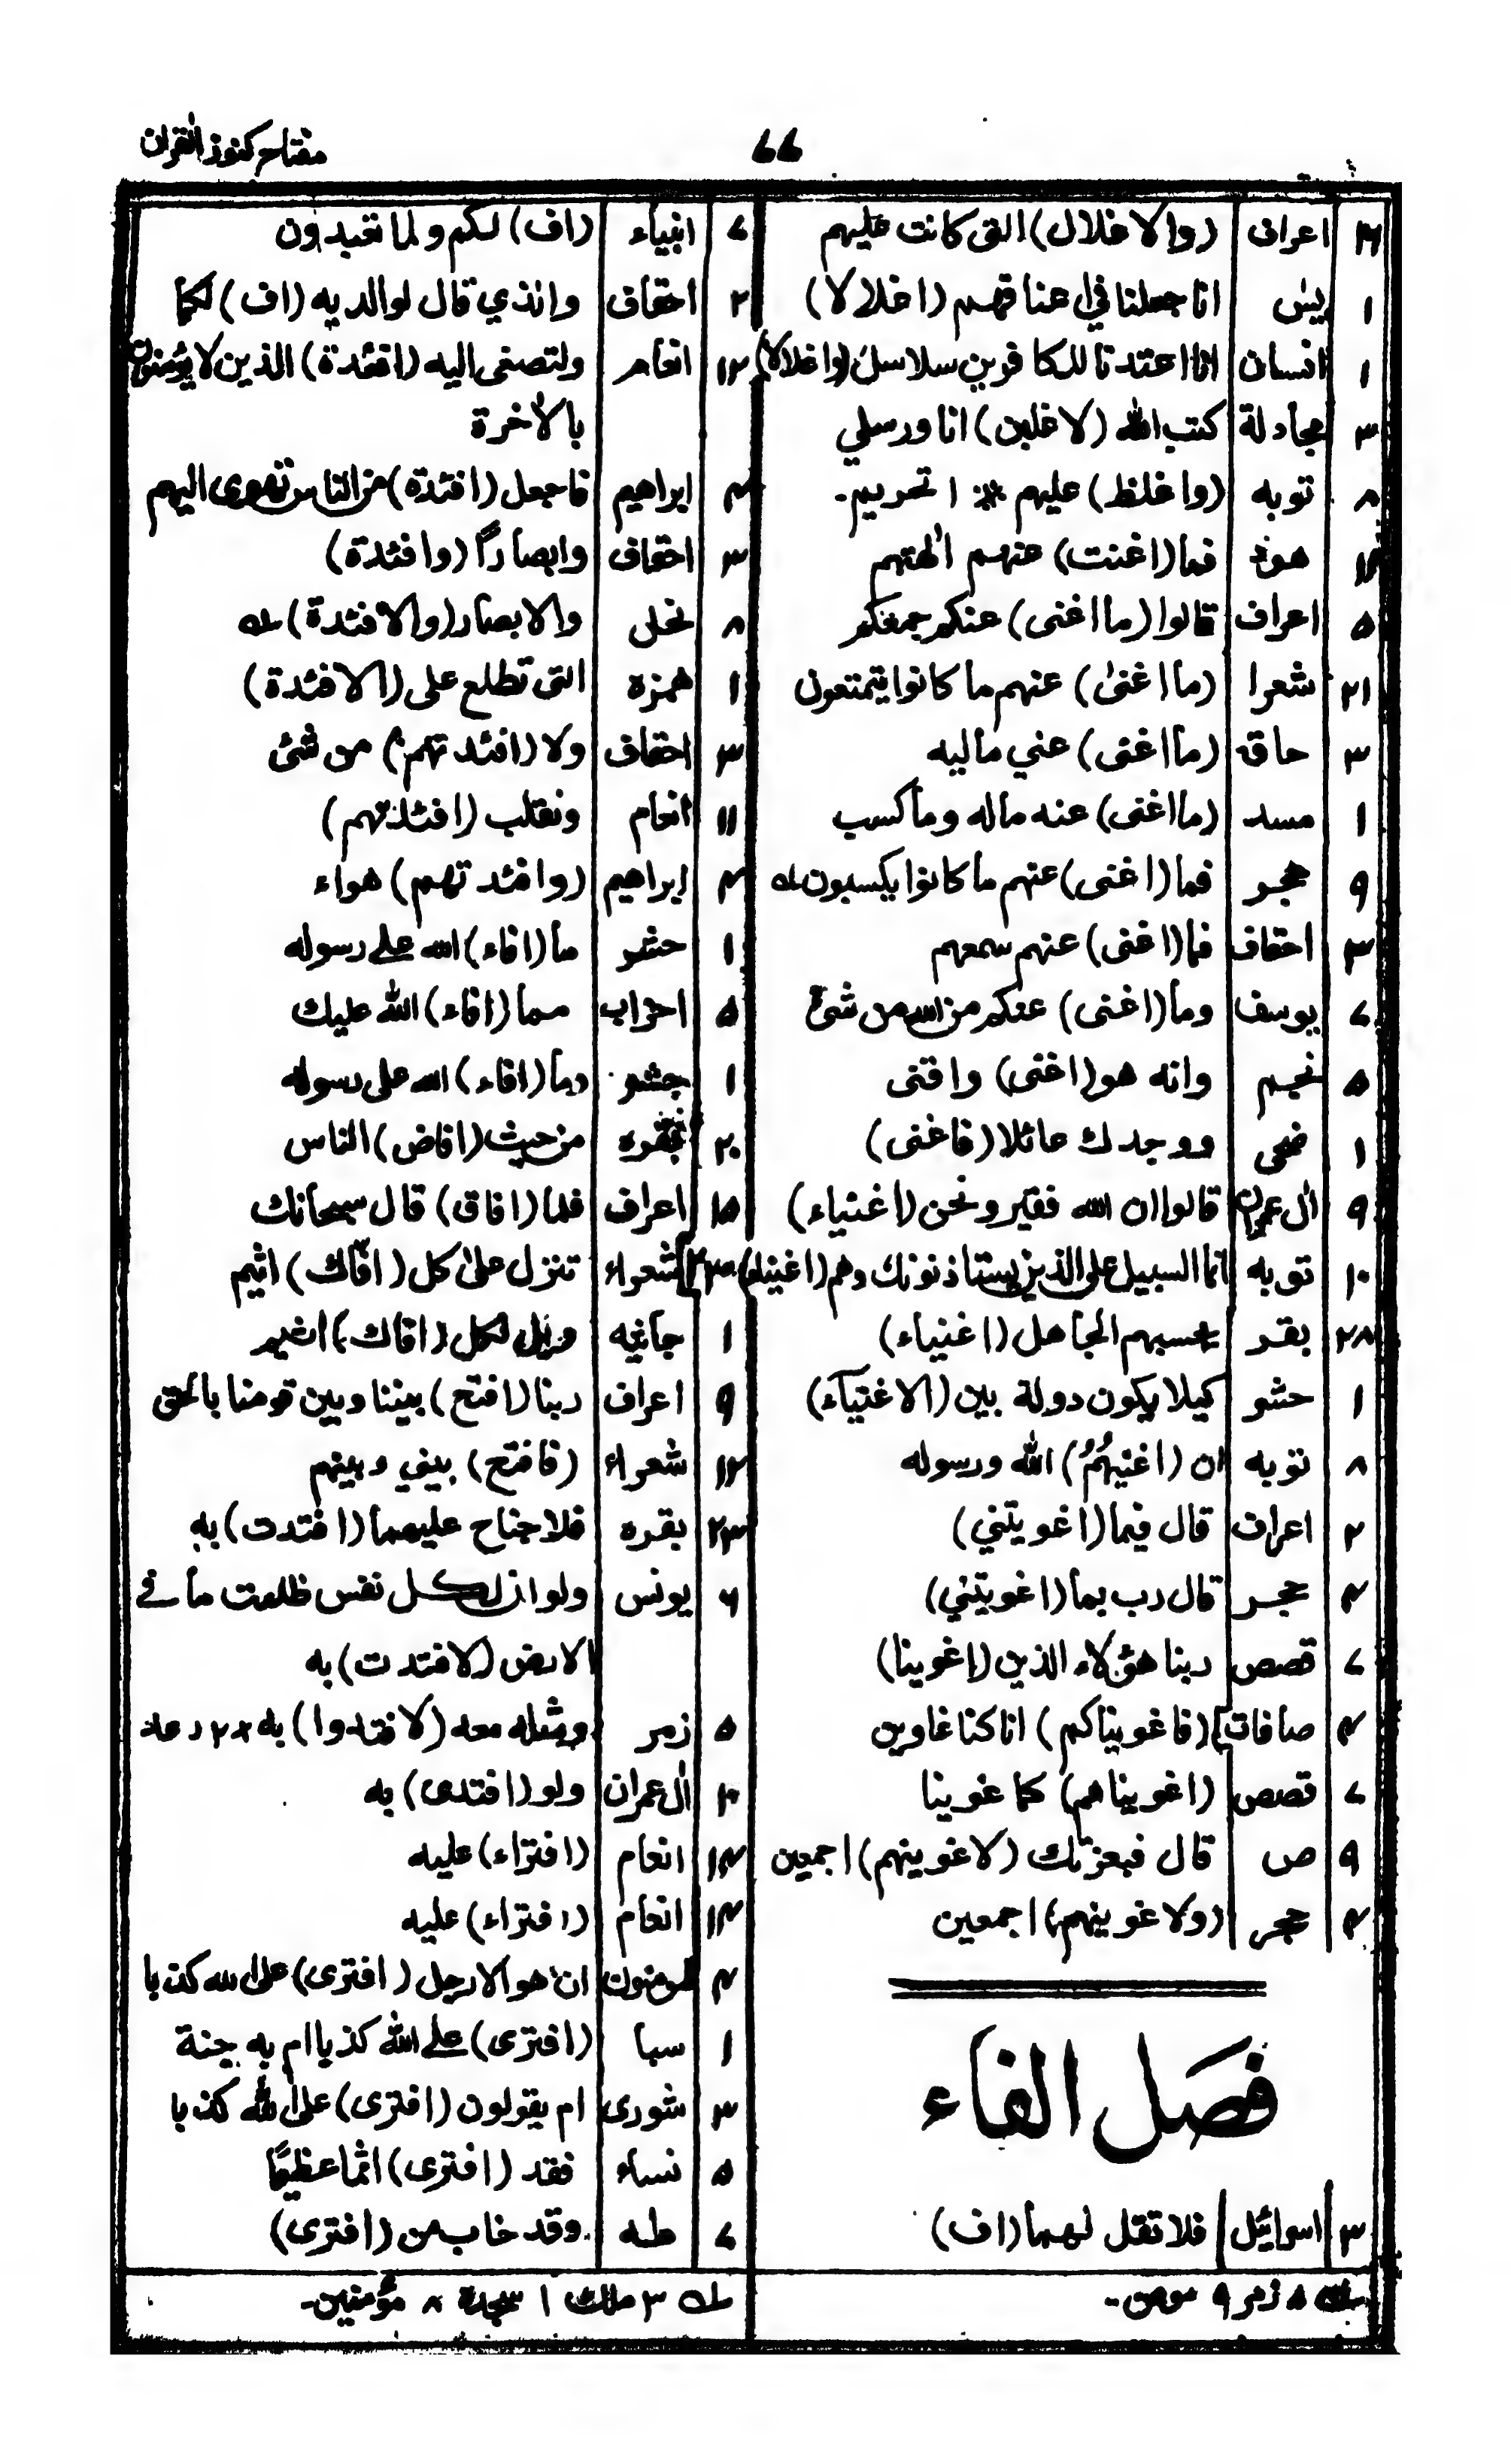 مفتاح كنوز القران
٧٧
اعراف (والاغلال) التى كانت عليهم
١ يٰس انا جعلنا في اعناقهم (اغلالا)
١ انسان انا اعتدنا للكافرين سلاسل (واغلالا)
٣ مجادلة كتب الله (لاغلبن) انا ورسلي
٨ توبه (واغلظ) عليهم ※ ١ تحريم-
هود فما (اغنت) عنهم الهتهم
٥ اعراف قالوا (ما اغنى) عنكم جمعكم
٢١ شعرا (ما اغنىٰ) عنهم ما كانوا يمتعون
٣ حاقه (ما اغنى) عني ماليه
١ مسد (ما اغنى) عنه ماله وما كسب
٩ حجر فما (اغنى) عنهم ما كانوا يكسبون له
٣ احقاف فما (اغنى) عنهم سمعهم
٧ يوسف وما (اغنى) عنكم من الله من شئ
٥ نجم وانه هو (اغنى) واقنى
١ ضحى ووجدك عائلا (فاغنى)
٩ اٰل عمران قالوا ان الله فقير ونحن (اغنياء)
١٠ توبه انما السبيل على الذين يستاذنونك وهم (اغنياء)
٢٨ بقر يحسبهم الجاهل (اغنياء)
١ حشر كيلا يكون دولة بين (الاغنياء)
٨ توبه ان (اغنيهُمُ) الله ورسوله
٢ اعراف قال فبما (اغويتني)
٣ حجر قال رب بما (اغويتني)
٧ قصص ربنا هؤلاء الذين (اغوينا)
٢ صافات (فاغويناكم) انا كنا غاوين
٧ قصص (اغويناهم) كما غوينا
٩ ص قال فبعزتك (لاغوينهم) اجمعين
٣ حجر (ولاغوينهم) اجمعين
فصل الفاء
٣ اسرائيل فلا تقل لهما (اف)
له ٥ زمر ٩ مومن-
٧ انبياء (اف) لكم ولما تعبدون
٢ احقاف والذي قال لوالديه (اف) لكما
١٣ انعام ولتصغى اليه (افئدة) الذين لا يؤمنون
بالاٰخرة
ابراهيم فاجعل (افئدة) من الناس تهوى اليهم
٣ احقاف وابصارًا (وافئدة)
٨ نحل والابصار (والافئدة) له
١ همزه التى تطلع على (الافئدة)
٣ احقاف ولا (افئدتهم) من شئ
١١ انعام ونقلب (افئدتهم)
ابراهيم (وافئدتهم) هواء
١ حشر ما (افاء) الله على رسوله
٥ احزاب مما (افاء) الله عليك
١ حشر وما (افاء) الله على رسوله
٢٠ بقره من حيث (افاض) الناس
اعراف فلما (افاق) قال سبحانك
شعراء تنزل علىٰ كل (افّاك) اثيم
١ جاثيه ويل لكل (افاك) اثيم
٩ اعراف ربنا (افتح) بيننا وبين قومنا بالحق
شعراء (فافتح) بيني وبينهم
٢٣ بقره فلا جناح عليهما (افتدت) به
٦ يونس ولو ان لكل نفس ظلمت ما فے
الارض (لافتدت) به
٥ زمر ومثله معه (لافتدوا) به
١٠ اٰل عمران ولو (افتدى) به
انعام (افتراء) عليه
انعام (افتراء) عليه
مومنون ان هو الا رجل (افترى) على الله كذبا
١ سبا (افترى) على الله كذبا ام به جنة
٣ شورى ام يقولون (افترى) على الله كذبا
٥ نساء فقد (افترى) اثما عظيمًا
٧ طه وقد خاب من (افترى)
له ٣ ملك ١ سجدة ٨ مؤمنين-